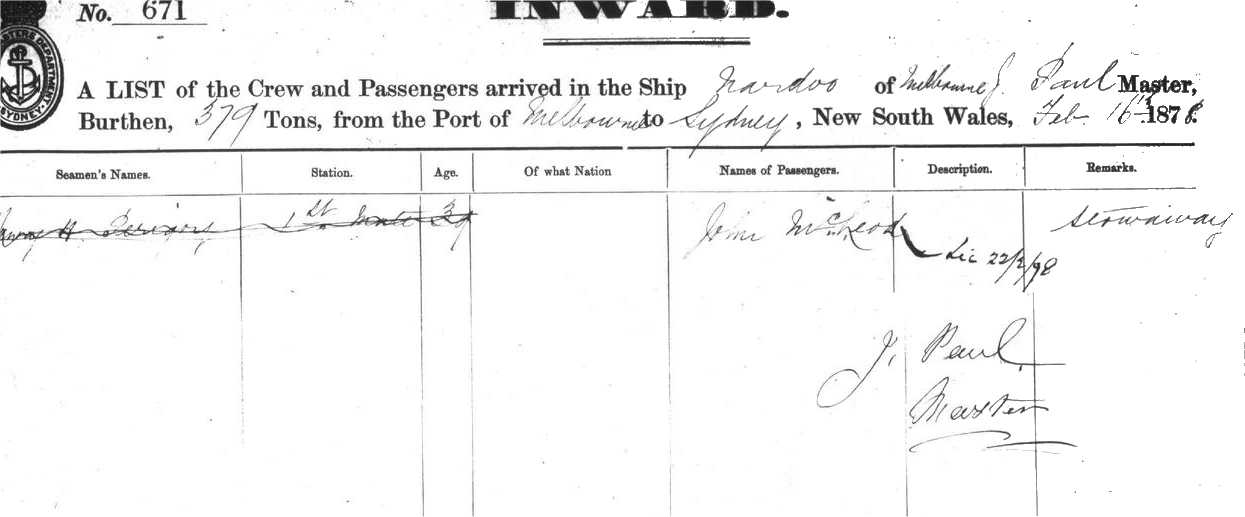 No. 671
INWARD.
A LIST of the Crew and Passengers arrived in the Ship Nardoo of Melbourne J. Paul Master,
Burthen, 379 Tons, from the Port of Melbourne to Sydney, New South Wales, Feb 16th 1878
Seamen's Names. Station. Age. Of what Nation Names of Passengers. Description. Remarks.
H. 1st Mate 39 John McLeod stowaway
22/2/78
J. Paul
Master